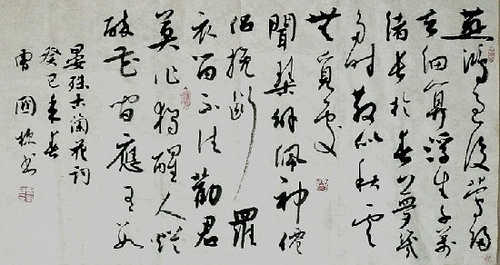 燕鴻過後鶯歸
去細算浮生千萬
緒長於春夢幾
多時散似秋雲
無覓處
聞琴解佩神僊
侶挽斷羅
衣留不住勸君
莫作獨醒人爛
醉花間應有數
晏殊木蘭花詞
癸巳春
曹國書